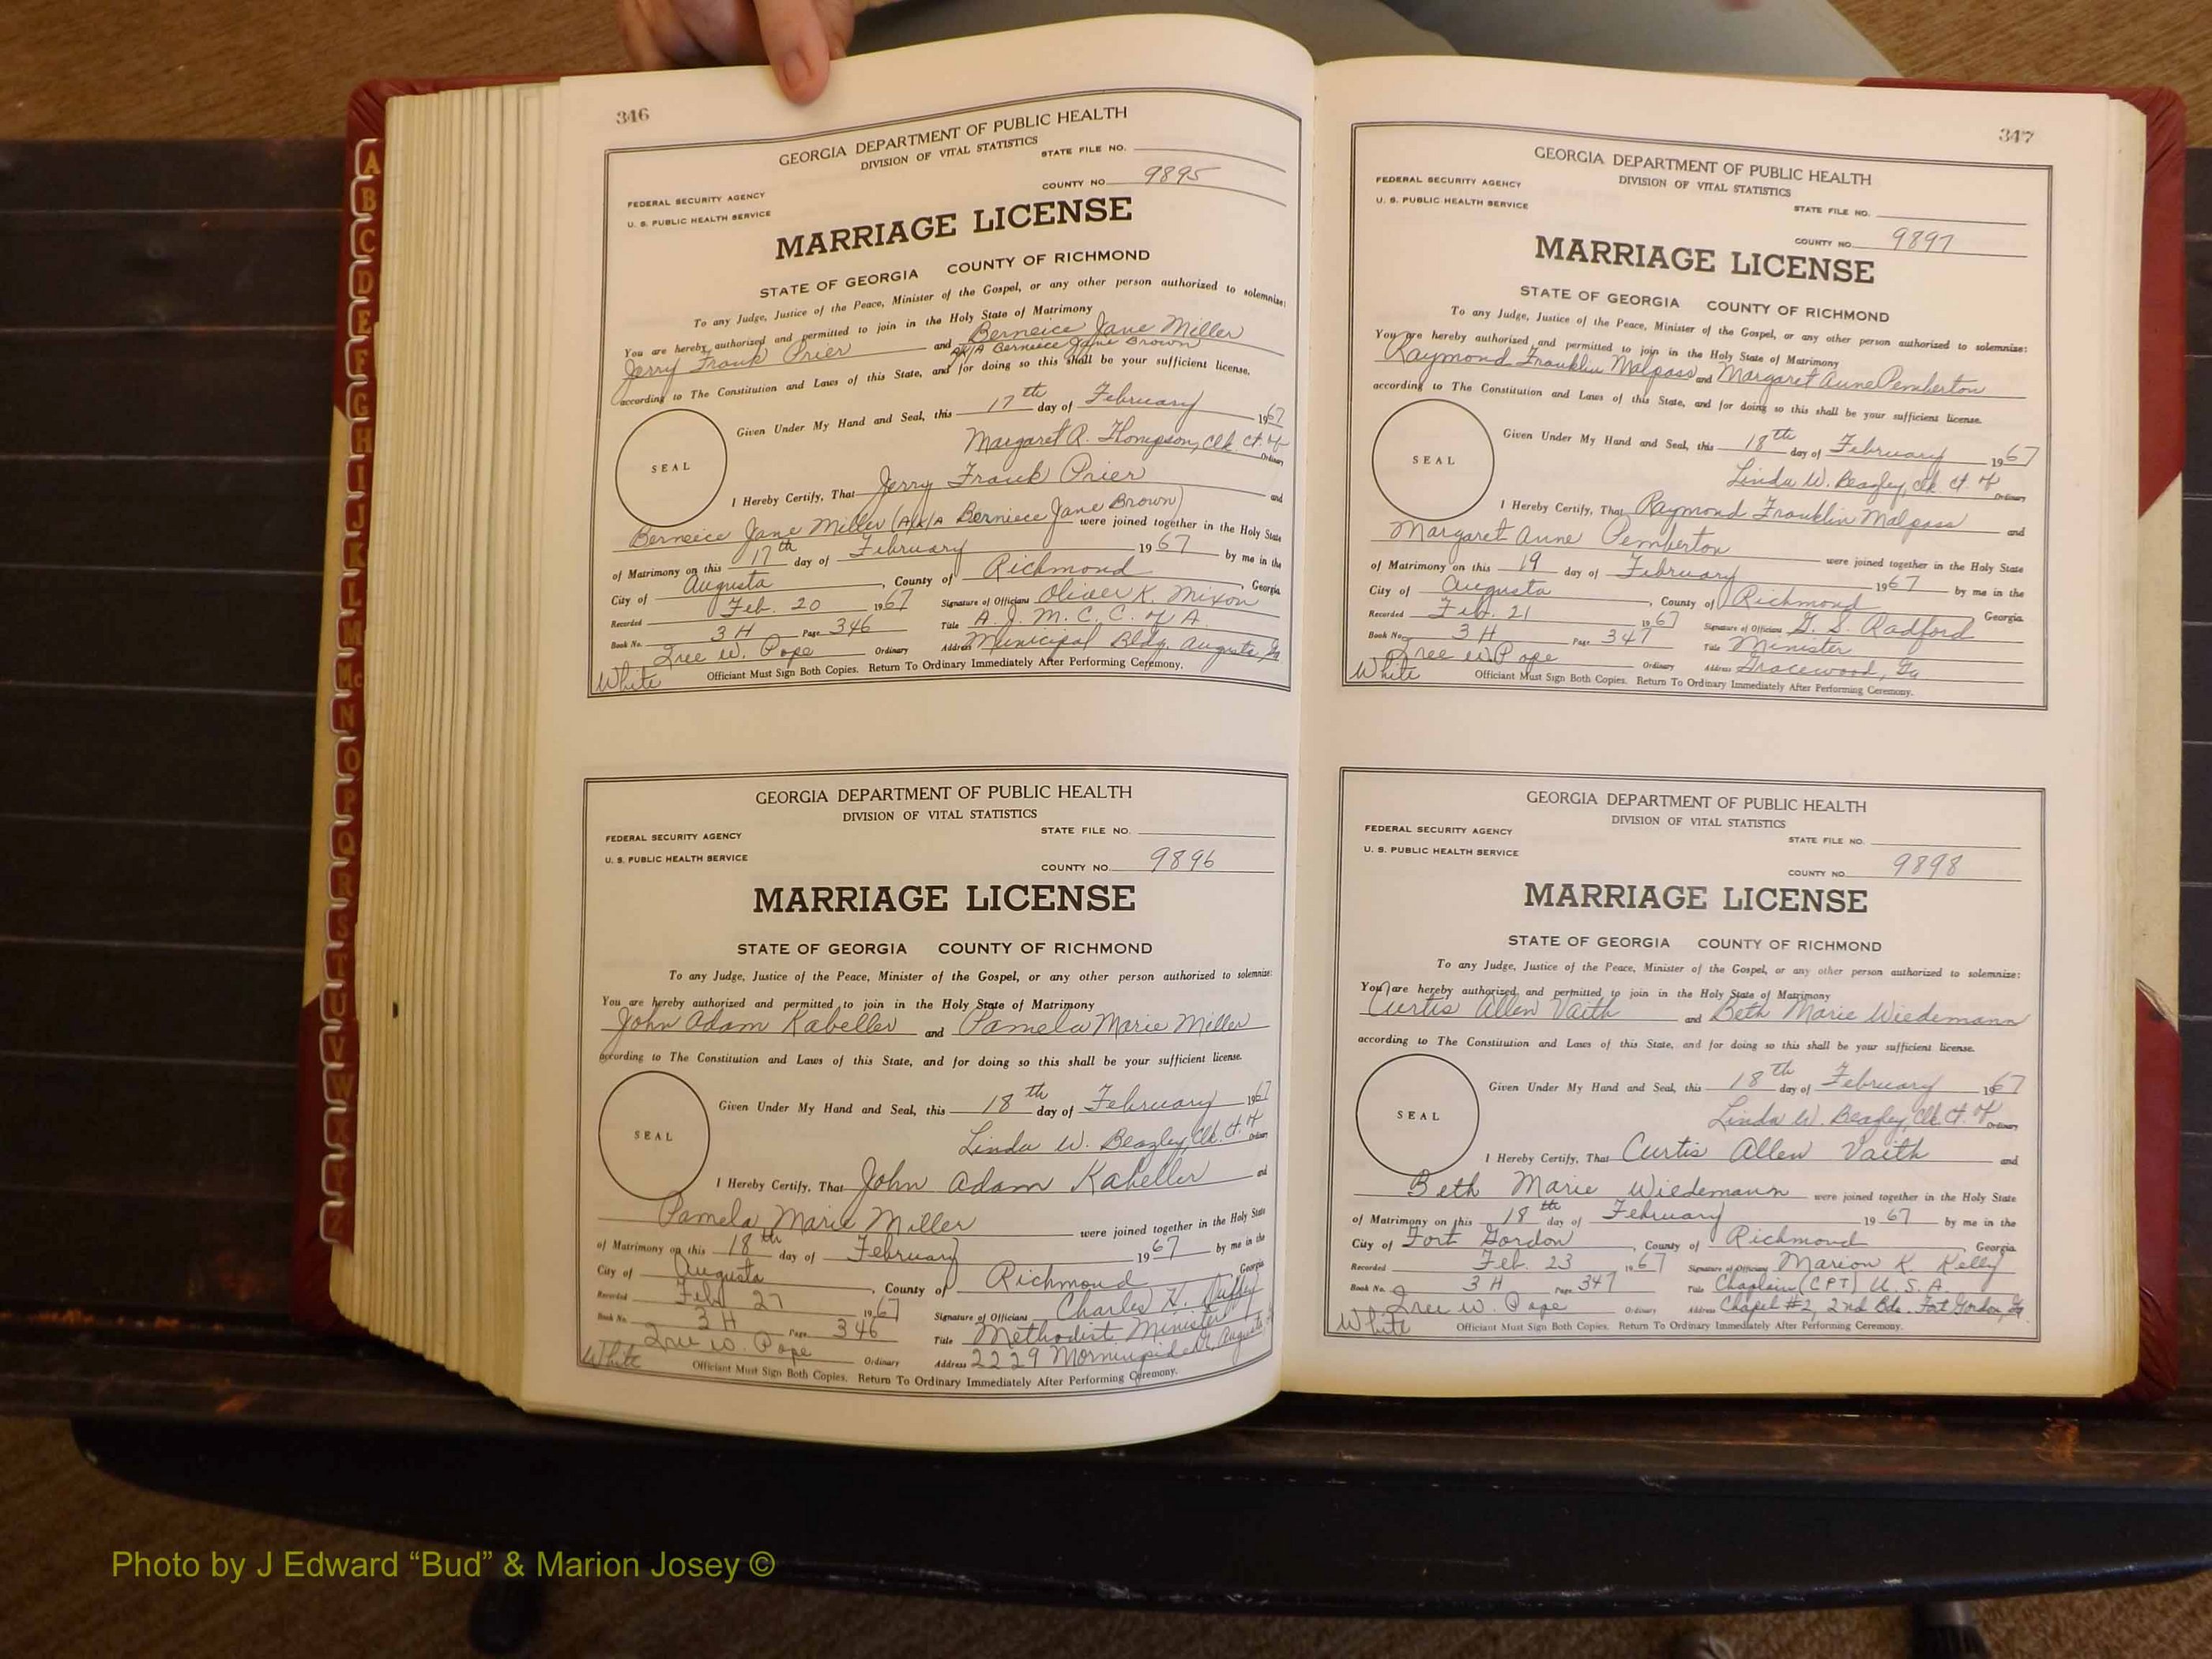 A
B
C
D
E
F
G
H
I
J
K
L
M
Mc
N
O
P
Q
R
S
T
U
V
W
X
Y
Z
346
GEORGIA DEPARTMENT OF PUBLIC HEALTH
DIVISION OF VITAL STATISTICS
STATE FILE NO.
FEDERAL SECURITY AGENCY
COUNTY NO. 9895
U. S. PUBLIC HEALTH SERVICE
MARRIAGE LICENSE
STATE OF GEORGIA COUNTY OF RICHMOND
To any Judge, Justice of the Peace, Minister of the Gospel, or any other person authorized to solemnize:
You are hereby authorized and permitted to join in the Holy State of Matrimony
Jerry Frank Prier and Berneice Jane Miller
A/K/A Berniece Jane Brown
according to The Constitution and Laws of this State, and for doing so this shall be your sufficient license.
Given Under My Hand and Seal, this 17th day of February 1967
Margaret R. Thompson, Clk. Ct. of Ordinary
SEAL
I Hereby Certify, That Jerry Frank Prier and
Berneice Jane Miller (A/K/A Berniece Jane Brown) were joined together in the Holy State
of Matrimony on this 17th day of February 1967 by me in the
City of Augusta, County of Richmond, Georgia
Recorded Feb. 20 1967 Signature of Officiant Oliver K. Mixon
Book No. 3 H Page 346 Title A. J. M. C. C. of A.
Iree W. Pope Ordinary Address Municipal Bldg. Augusta, Ga
White Officiant Must Sign Both Copies. Return To Ordinary Immediately After Performing Ceremony.
GEORGIA DEPARTMENT OF PUBLIC HEALTH
DIVISION OF VITAL STATISTICS
STATE FILE NO.
FEDERAL SECURITY AGENCY
U. S. PUBLIC HEALTH SERVICE
COUNTY NO. 9896
MARRIAGE LICENSE
STATE OF GEORGIA COUNTY OF RICHMOND
To any Judge, Justice of the Peace, Minister of the Gospel, or any other person authorized to solemnize:
You are hereby authorized and permitted to join in the Holy State of Matrimony
John Adam Kabeller and Pamela Marie Miller
according to The Constitution and Laws of this State, and for doing so this shall be your sufficient license.
Given Under My Hand and Seal, this 18th day of February 1967
Linda W. Beazley, Clk. Ct. of Ordinary
SEAL
I Hereby Certify, That John Adam Kabeller and
Pamela Marie Miller were joined together in the Holy State
of Matrimony on this 18th day of February 1967 by me in the
City of Augusta, County of Richmond Georgia
Recorded Feb 27 1967 Signature of Officiant Charles H. Duffey
Book No. 3 H Page 346 Title Methodist Minister
Iree W. Pope Ordinary Address 2229 Morningside Dr, Augusta
White Officiant Must Sign Both Copies. Return To Ordinary Immediately After Performing Ceremony.
347
GEORGIA DEPARTMENT OF PUBLIC HEALTH
DIVISION OF VITAL STATISTICS
FEDERAL SECURITY AGENCY
U. S. PUBLIC HEALTH SERVICE
STATE FILE NO.
COUNTY NO. 9897
MARRIAGE LICENSE
STATE OF GEORGIA COUNTY OF RICHMOND
To any Judge, Justice of the Peace, Minister of the Gospel, or any other person authorized to solemnize:
You are hereby authorized and permitted to join in the Holy State of Matrimony
Raymond Franklin Malpass and Margaret Anne Pemberton
according to The Constitution and Laws of this State, and for doing so this shall be your sufficient license.
Given Under My Hand and Seal, this 18th day of February 1967
Linda W. Beazley, Clk. Ct. of Ordinary
SEAL
I Hereby Certify, That Raymond Franklin Malpass and
Margaret Anne Pemberton were joined together in the Holy State
of Matrimony on this 19 day of February 1967 by me in the
City of Augusta, County of Richmond Georgia
Recorded Feb. 21 1967 Signature of Officiant G. S. Radford
Book No. 3 H Page 347 Title Minister
Iree W. Pope Ordinary Address Gracewood, Ga
White Officiant Must Sign Both Copies. Return To Ordinary Immediately After Performing Ceremony.
GEORGIA DEPARTMENT OF PUBLIC HEALTH
DIVISION OF VITAL STATISTICS
FEDERAL SECURITY AGENCY
STATE FILE NO.
U. S. PUBLIC HEALTH SERVICE
COUNTY NO. 9898
MARRIAGE LICENSE
STATE OF GEORGIA COUNTY OF RICHMOND
To any Judge, Justice of the Peace, Minister of the Gospel, or any other person authorized to solemnize:
You are hereby authorized and permitted to join in the Holy State of Matrimony
Curtis Allen Vaith and Beth Marie Wiedemann
according to The Constitution and Laws of this State, and for doing so this shall be your sufficient license.
Given Under My Hand and Seal, this 18th day of February 1967
Linda W. Beazley, Clk. Ct. of Ordinary
SEAL
I Hereby Certify, That Curtis Allen Vaith and
Beth Marie Wiedemann were joined together in the Holy State
of Matrimony on this 18th day of February 1967 by me in the
City of Fort Gordon, County of Richmond Georgia
Recorded Feb. 23 1967 Signature of Officiant Marion K. Kelly
Book No. 3 H Page 347 Title Chaplain (CPT) U.S.A
Iree W. Pope Ordinary Address Chapel #2, 2nd Bde. Fort Gordon, Ga.
White Officiant Must Sign Both Copies. Return To Ordinary Immediately After Performing Ceremony.
Photo by J Edward “Bud” & Marion Josey ©